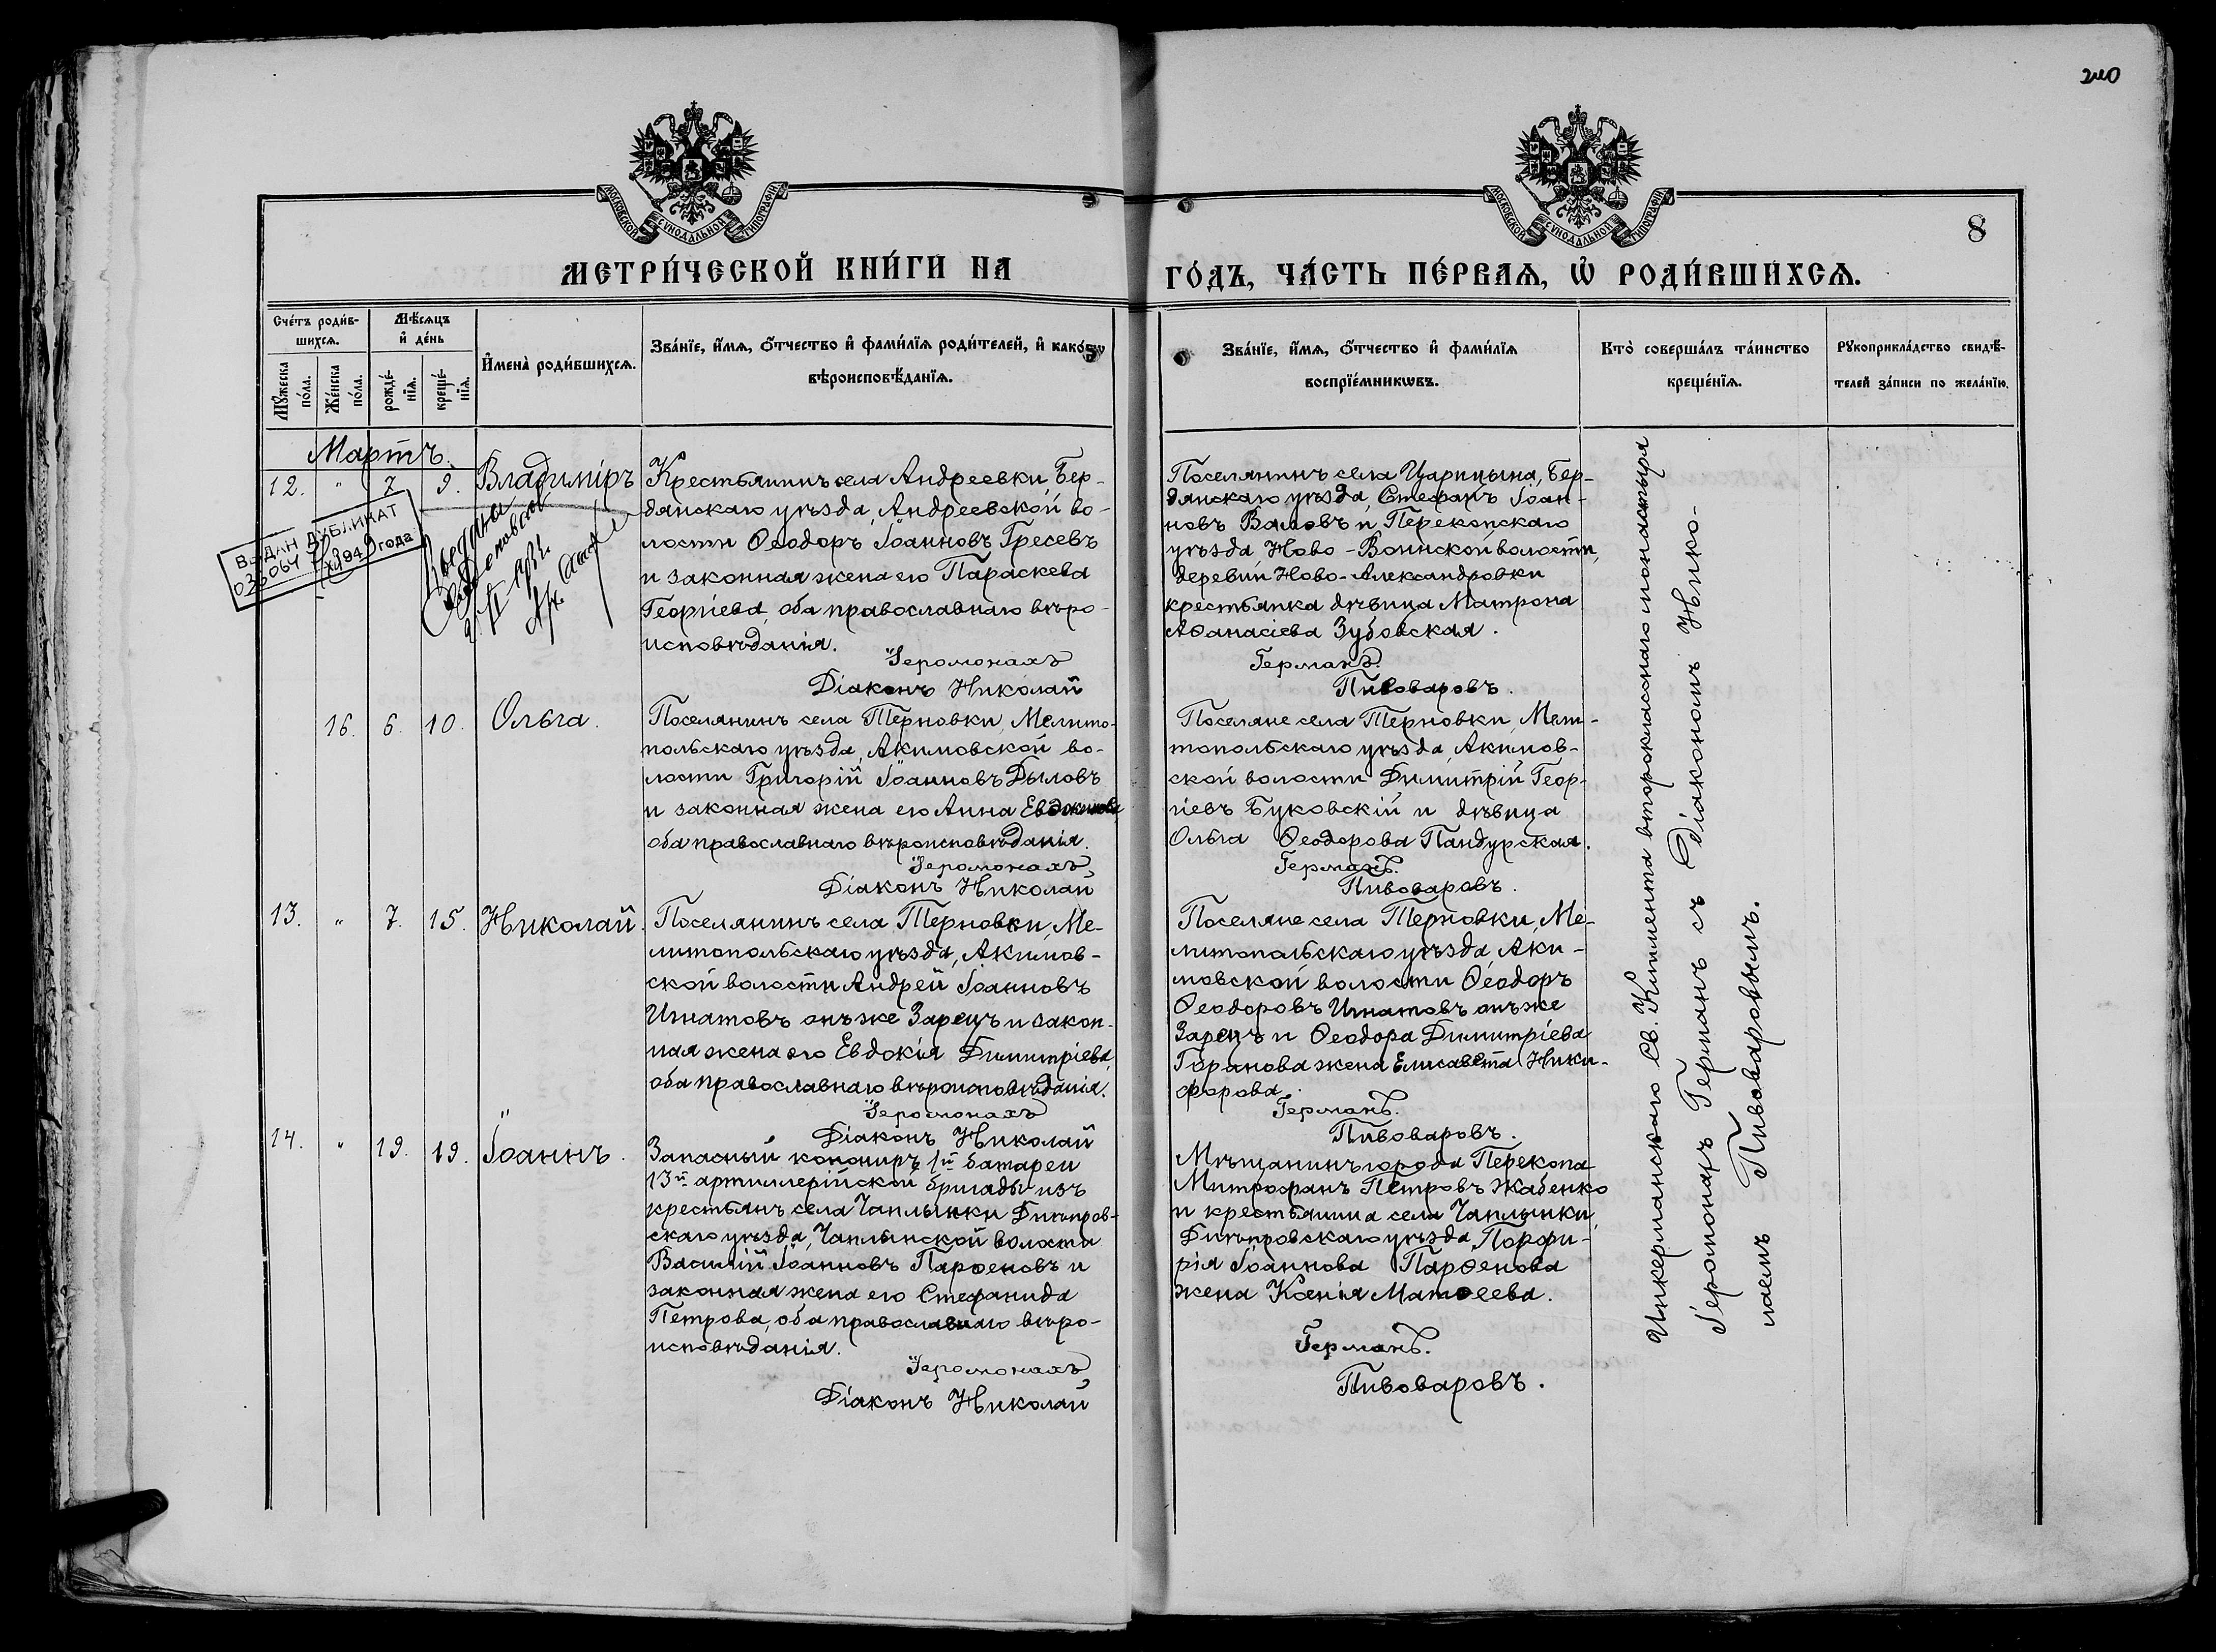 240
МОСКОВСКОЙ СѴНОДАЛЬНОЙ ТИПОГРАФІИ
МОСКОВСКОЙ СѴНОДАЛЬНОЙ ТИПОГРАФІИ
8
МЕТРИ́ЧЕСКОЙ КНИ́ГИ НА
ГО́ДЪ, ЧА́СТЬ ПЕ́РВАѦ, Ѡ РОДИ́ВШИХСѦ.
Сче́тъ роди́в-
шихсѧ.
Мꙋжеска по́ла.
Же́нска по́ла.
Мѣ́сѧцъ
и де́нь
рожде́-
нїѧ.
креще́-
нїѧ.
Имена̀ роди́вшихсѧ.
Зва́нїе, и́мѧ, о́тчество и фами́лїѧ роди́телей, и како́гѡ
вѣроисповѣ́данїѧ.
Зва́нїе, и́мѧ, о́тчество и фами́лїѧ
воспрїе́мникѡвъ.
Кто̀ соверша́лъ та́инство
креще́нїѧ.
Рꙋкоприкла́дство свидѣ́-
телей за́писи по жела́нїю.
Мартъ.
12. " 7 9. Владиміръ
ВЫДАН ДУБЛИКАТ
года
Крестьянинъ села Андреевки, Бер-
дянскаго уѣзда, Андреевской во-
лости Ѳеодоръ Іоанновъ Гресевъ
и законная жена его Параскева
Георгіева, оба православнаго вѣро-
исповѣданія.
Іеромонахъ
Діаконъ Николай
Поселянинъ села Царицына, Бер-
дянскаго уѣзда, Стефанъ Іоан-
новъ Валовъ и Перекопскаго
уѣзда Ново-Воинской волости,
деревни Ново-Александровки
крестьянка дѣвица Матрона
Аѳанасіева Зубовская.
Германъ.
Пивоваровъ.
16. 6. 10. Ольга.
Поселянинъ села Терновки, Мелито-
польскаго уѣзда, Акимовской во-
лости Григорій Іоанновъ Дыловъ
и законная жена его Анна Евдокимова
оба православнаго вѣроисповѣданія.
Іеромонахъ
Діаконъ Николай
Поселяне села Терновки, Мели-
топольскаго уѣзда, Акимов-
ской волости Димитрій Геор-
гіевъ Буковскій и дѣвица
Ольга Ѳеодорова Пандурская.
Германъ.
Пивоваровъ.
13. " 7. 15. Николай.
Поселянинъ села Терновки, Ме-
литопольскаго уѣзда, Акимов-
ской волости Андрей Іоанновъ
Игнатовъ онъ же Зарецъ и закон-
ная жена его Евдокія Димитріева,
оба православнаго вѣроисповѣданія.
Іеромонахъ
Діаконъ Николай
Поселяне села Терновки, Ме-
литопольскаго уѣзда, Аки-
мовской волости Ѳеодоръ
Ѳеодоровъ Игнатовъ онъ же
Зарецъ и Ѳеодора Димитріева
Горанова жена Елисавета Ники-
форова.
Германъ.
Пивоваровъ.
14. " 19. 19. Іоаннъ.
Запасный кононнръ 1й батареи
13й артиллерійской бригады изъ
крестьянъ села Чаплынки Днѣпров-
скаго уѣзда, Чаплынской волости
Василій Іоанновъ Парѳеновъ и
законная жена его Стефанида
Петрова, оба православнаго вѣро-
исповѣданія.
Іеромонахъ
Діаконъ Николай
Мѣщанинъ города Перекопа
Митрофанъ Петровъ Жабенко
и крестьянина села Чаплынки
Днѣпровскаго уѣзда, Порфи-
рія Іоаннова Парѳенова
жена Ксенія Матѳеева.
Германъ.
Пивоваровъ.
Инкерманскаго Св. Климента второкласснаго монастыря
Іеромонахъ Германъ съ Діакономъ Нико-
лаемъ Пивоваровымъ.